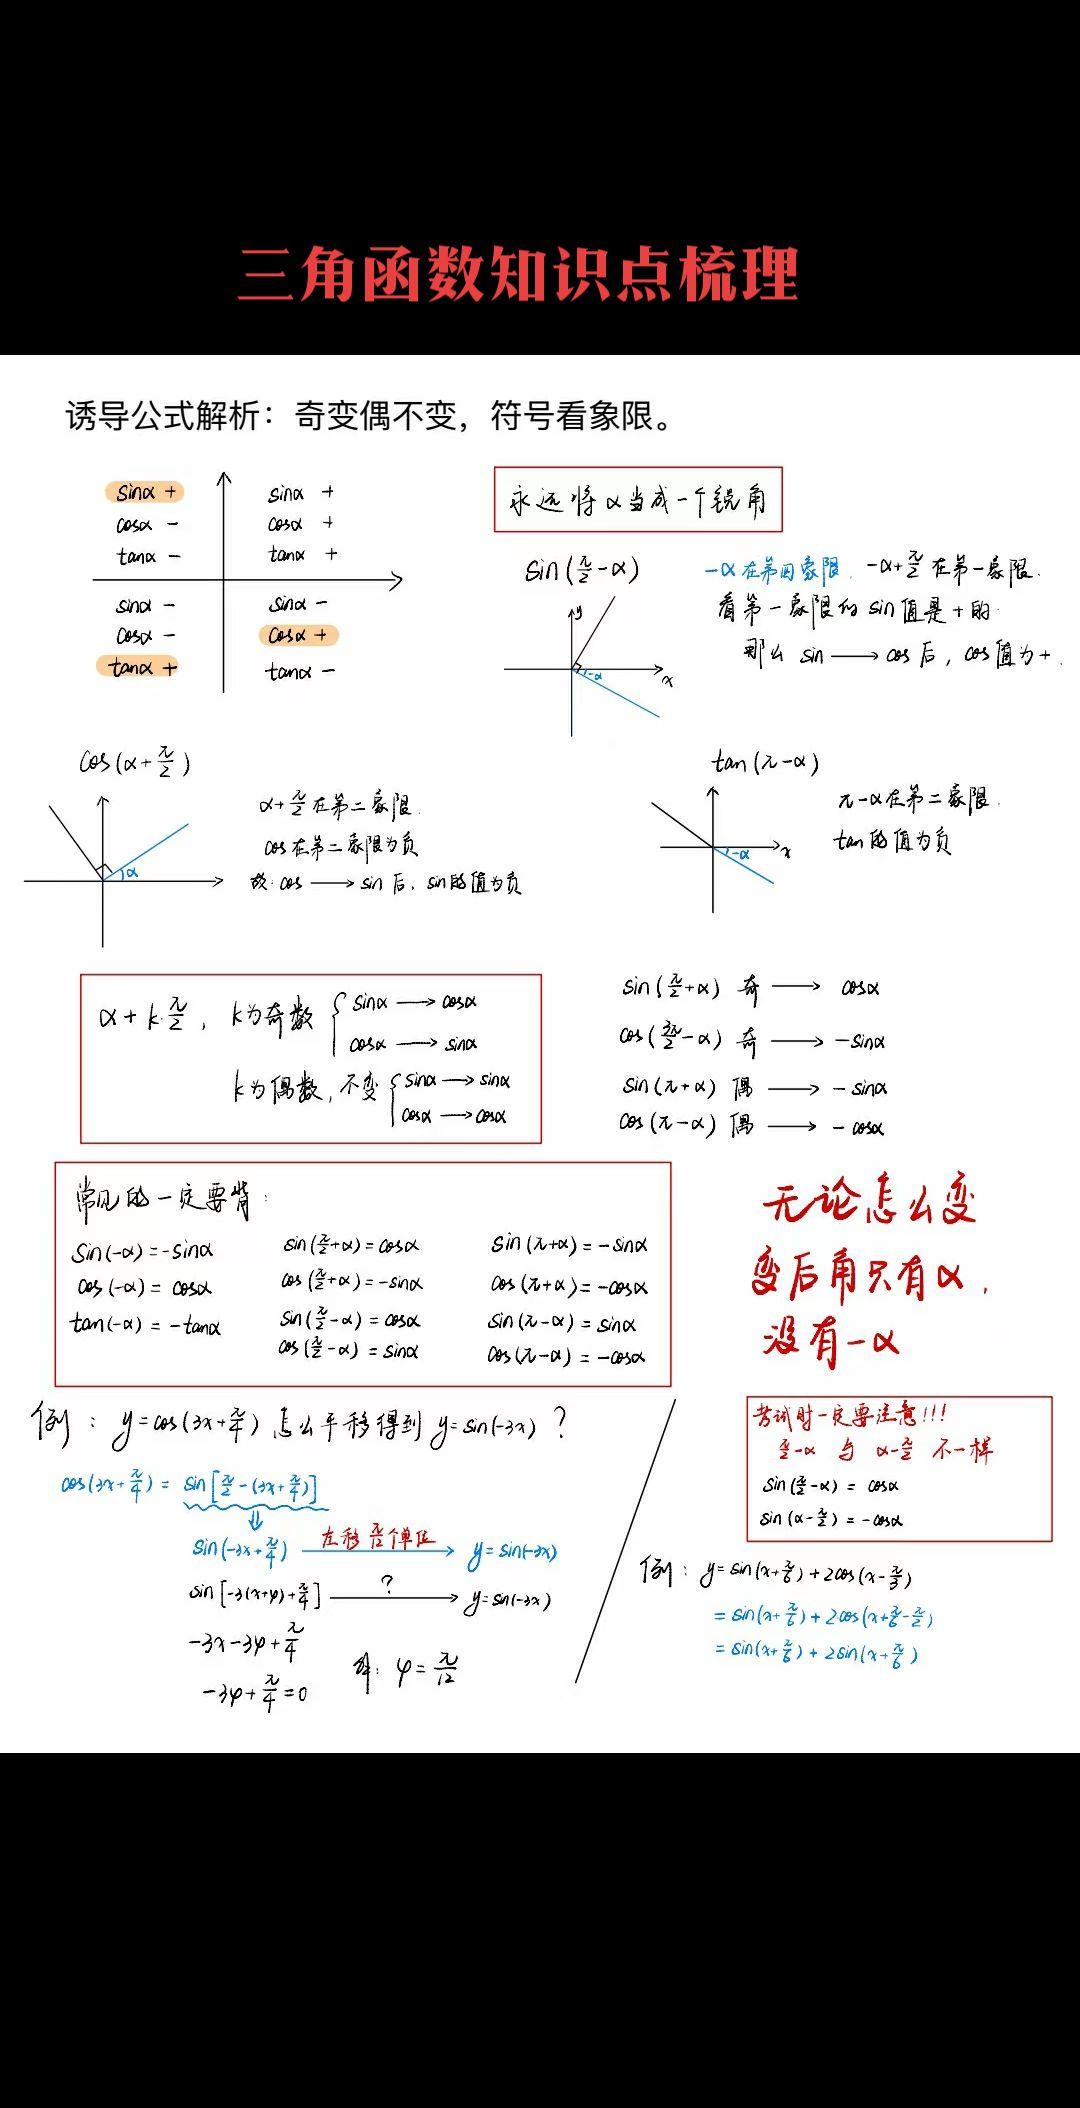 三角函数知识点梳理
诱导公式解析：奇变偶不变，符号看象限。
sinα +
cosα -
tanα -
sinα +
cosα +
tanα +
sinα -
cosα -
tanα +
sinα -
cosα +
tanα -
永远将α当成一个锐角
sin(π/2-α)
y
x
-α
-α在第四象限. -α+π/2在第一象限.
看第一象限的sin值是+的.
那么 sin ⟶ cos后, cos值为+.
cos(α+π/2)
α
α+π/2在第二象限.
cos在第二象限为负
故. cos ⟶ sin后, sin的值为负
tan(π-α)
x
-α
π-α在第二象限.
tan的值为负
α+k·π/2, k为奇数 { sinα ⟶ cosα
cosα ⟶ sinα
k为偶数, 不变 { sinα ⟶ sinα
cosα ⟶ cosα
sin(π/2+α) 奇 ⟶ cosα
cos(3π/2-α) 奇 ⟶ -sinα
sin(π+α) 偶 ⟶ -sinα
cos(π-α) 偶 ⟶ -cosα
常见的一定要背:
sin(-α)=-sinα
cos(-α)=cosα
tan(-α)=-tanα
sin(π/2+α)=cosα
cos(π/2+α)=-sinα
sin(π/2-α)=cosα
cos(π/2-α)=sinα
sin(π+α)=-sinα
cos(π+α)=-cosα
sin(π-α)=sinα
cos(π-α)=-cosα
无论怎么变
变后角只有α,
没有-α
例: y=cos(3x+π/4)怎么平移得到y=sin(-3x)?
cos(3x+π/4)=sin[π/2-(3x+π/4)]
⇓
sin(-3x+π/4) 左移π/12个单位 ⟶ y=sin(-3x)
sin[-3(x+φ)+π/4] ? ⟶ y=sin(-3x)
-3x-3φ+π/4
-3φ+π/4=0
解: φ=π/12
考试时一定要注意!!!
π/2-α 与 α-π/2 不一样
sin(π/2-α)=cosα
sin(α-π/2)=-cosα
例: y=sin(x+π/6)+2cos(x-π/3)
=sin(x+π/6)+2cos(x+π/6-π/2)
=sin(x+π/6)+2sin(x+π/6)